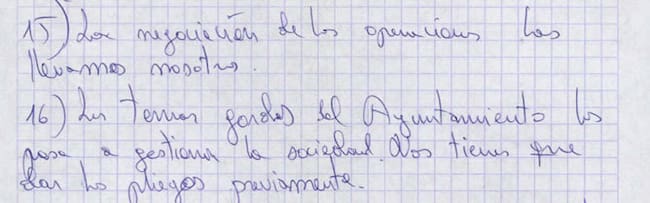 15) La negociación de las operaciones las
llevamos nosotros.
16) Los temas gordos del Ayuntamiento los
pasa a gestionar la sociedad. Nos tienen que
dar los pliegos previamente.